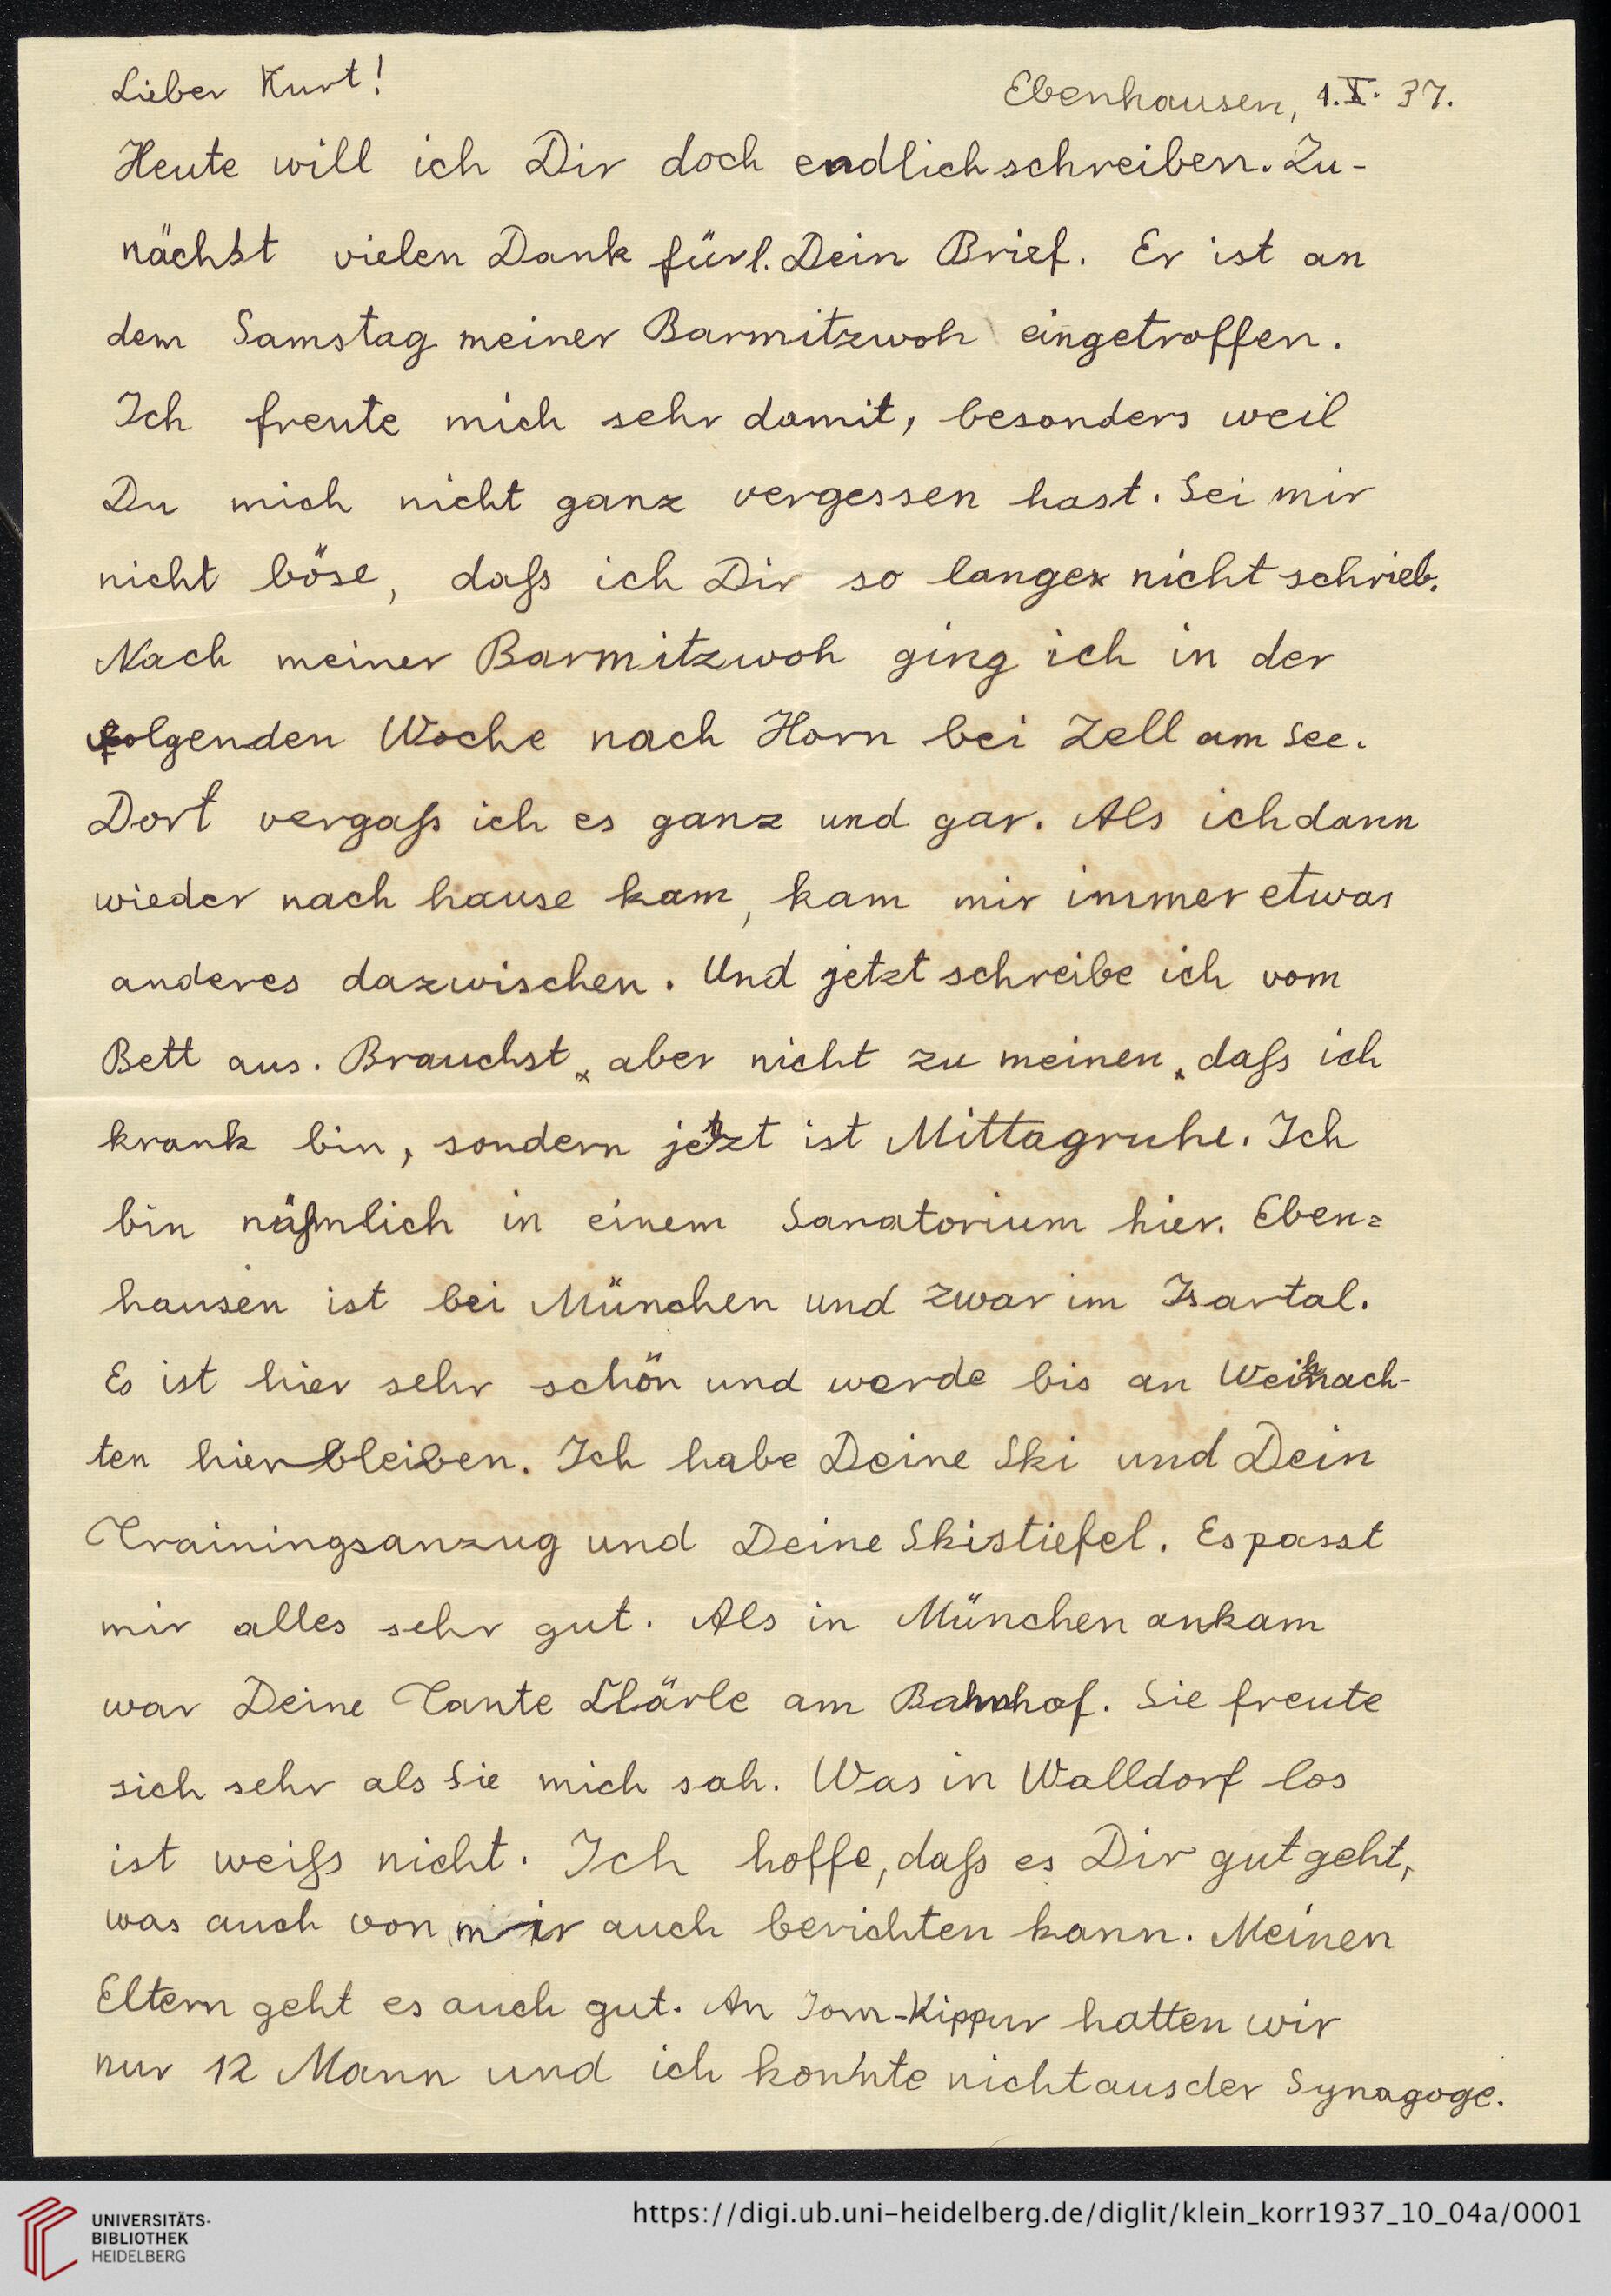 Lieber Kurt!
Ebenhausen, 1.X. 37.
Heute will ich Dir doch endlich schreiben. Zu-
nächst vielen Dank für l. Dein Brief. Er ist an
dem Samstag meiner Barmitzwoh eingetroffen.
Ich freute mich sehr damit, besonders weil
Du mich nicht ganz vergessen hast. Sei mir
nicht böse, daſs ich Dir so lange nicht schrieb.
Nach meiner Barmitzwoh ging ich in der
folgenden Woche nach Horn bei Zell am See.
Dort vergaſs ich es ganz und gar. Als ich dann
wieder nach hause kam, kam mir immer etwas
anderes dazwischen. Und jetzt schreibe ich vom
Bett aus. Brauchst aber nicht zu meinen, daſs ich
krank bin, sondern jetzt ist Mittagruhe. Ich
bin nähmlich in einem Sanatorium hier. Eben=
hausen ist bei München und zwar im Isartal.
Es ist hier sehr schön und werde bis an Weihnach-
ten hier bleiben. Ich habe Deine Ski und Dein
Trainingsanzug und Deine Skistiefel. Es passt
mir alles sehr gut. Als in München ankam
war Deine Tante Clärle am Bahnhof. Sie freute
sich sehr als Sie mich sah. Was in Walldorf los
ist weiſs nicht. Ich hoffe, daſs es Dir gut geht,
was auch von mir auch berichten kann. Meinen
Eltern geht es auch gut. An Jom-Kippur hatten wir
nur 12 Mann und ich konnte nicht aus der Synagoge.
UNIVERSITÄTS-
BIBLIOTHEK
HEIDELBERG
https://digi.ub.uni-heidelberg.de/diglit/klein_korr1937_10_04a/0001